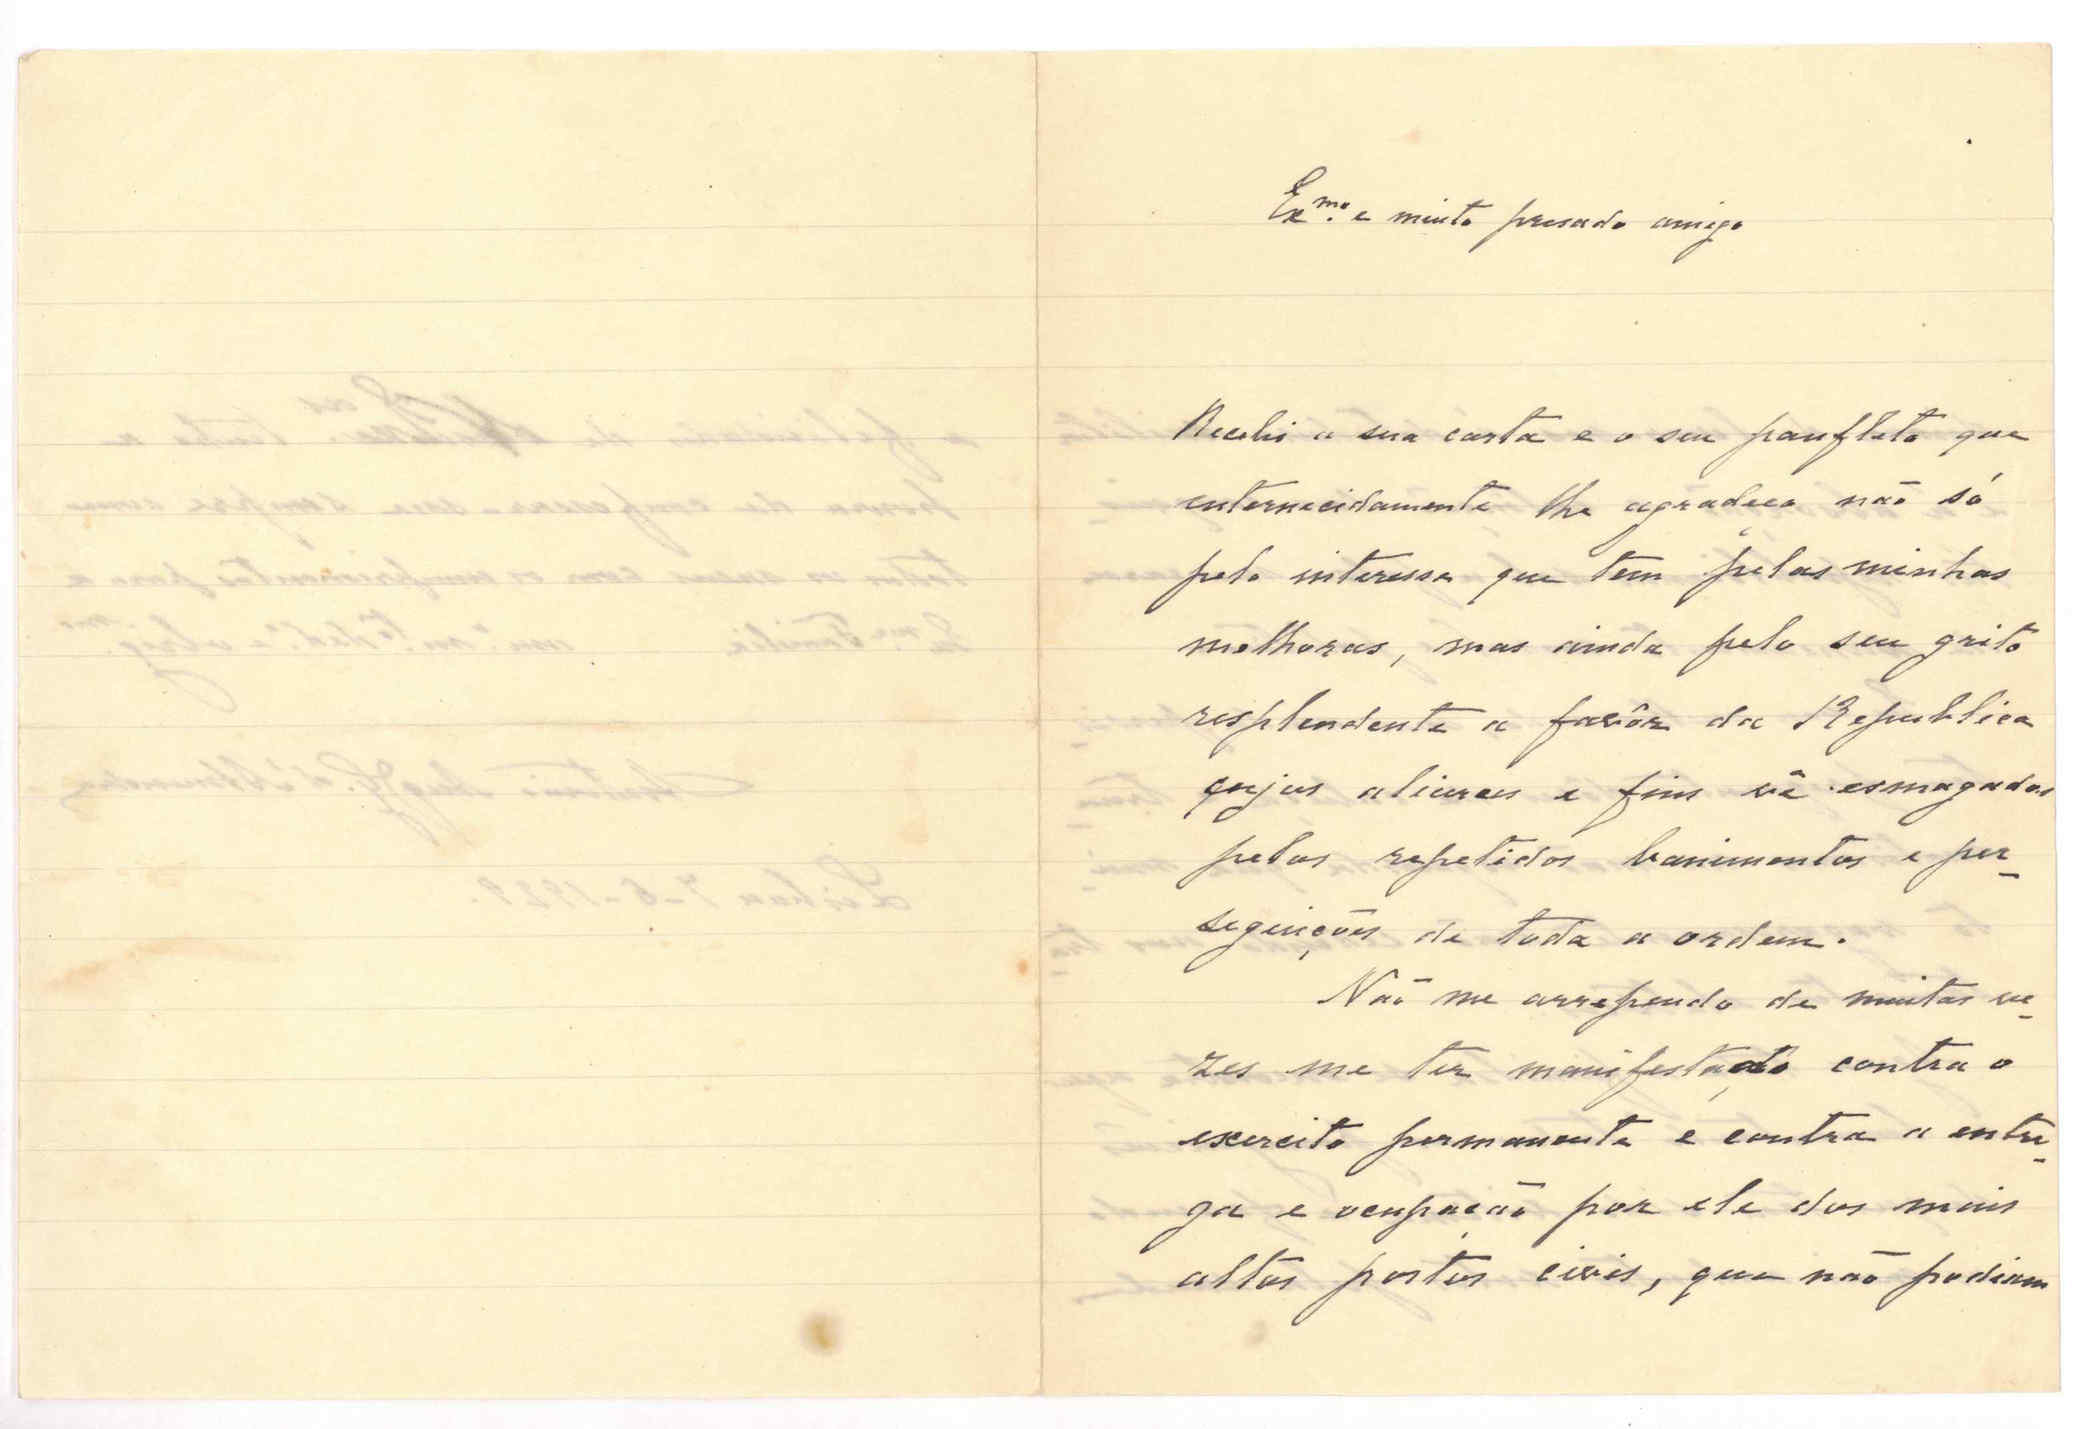 Ex.mo e muito presado amigo
Recebi a sua carta e o seu panfleto que
enternecidamente lhe agradeço não só
pelo interesse que tem pelas minhas
melhoras, mas ainda pelo seu grito
resplendente a favôr da Republica
cujos alicerces e fins vê esmagados
pelos repetidos banimentos e per-
seguições de toda a ordem.
Não me arrependo de muitas ve-
zes me ter manifestado contra o
exercito permanente e contra a entre-
ga e ocupação por ele dos mais
altos postos civis, que não podiam
Lisboa 7-6-1929.